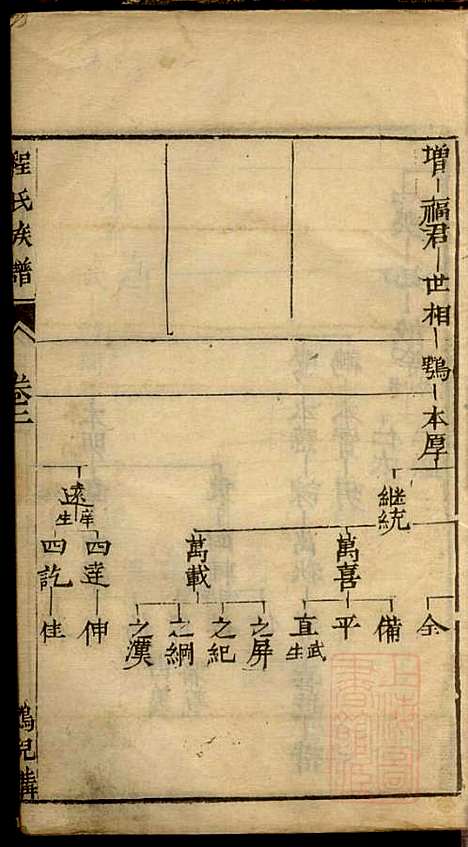 增
福君
世相
鶚
本厚
継統
萬喜
萬載
仝
備
平
直 武生
之屏
之紀
之綱
之漢
遠 庠生
四達
四訖
伸
佳
程氏族譜
卷二